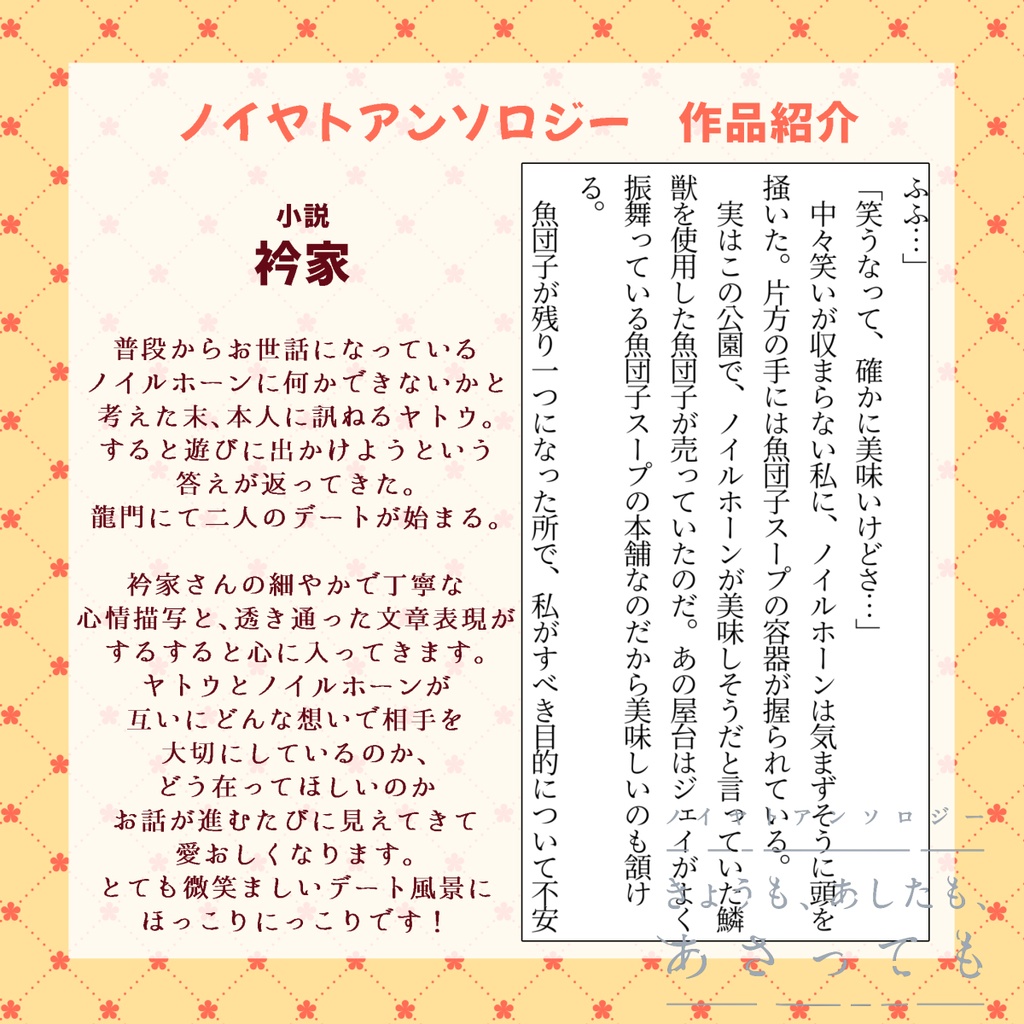 ノイヤトアンソロジー　作品紹介
小説
衿家
普段からお世話になっている
ノイルホーンに何かできないかと
考えた末、本人に訊ねるヤトウ。
すると遊びに出かけようという
答えが返ってきた。
龍門にて二人のデートが始まる。
衿家さんの細やかで丁寧な
心情描写と、透き通った文章表現が
するすると心に入ってきます。
ヤトウとノイルホーンが
互いにどんな想いで相手を
大切にしているのか、
どう在ってほしいのか
お話が進むたびに見えてきて
愛おしくなります。
とても微笑ましいデート風景に
ほっこりにっこりです！
ふふ…」
「笑うなって、確かに美味いけどさ…」
　中々笑いが収まらない私に、ノイルホーンは気まずそうに頭を
掻いた。片方の手には魚団子スープの容器が握られている。
　実はこの公園で、ノイルホーンが美味しそうだと言っていた鱗
獣を使用した魚団子が売っていたのだ。あの屋台はジェイがよく
振舞っている魚団子スープの本舗なのだから美味しいのも頷け
る。
　魚団子が残り一つになった所で、私がすべき目的について不安
ノイヤトアンソロジー
きょうも、あしたも、
あさっても